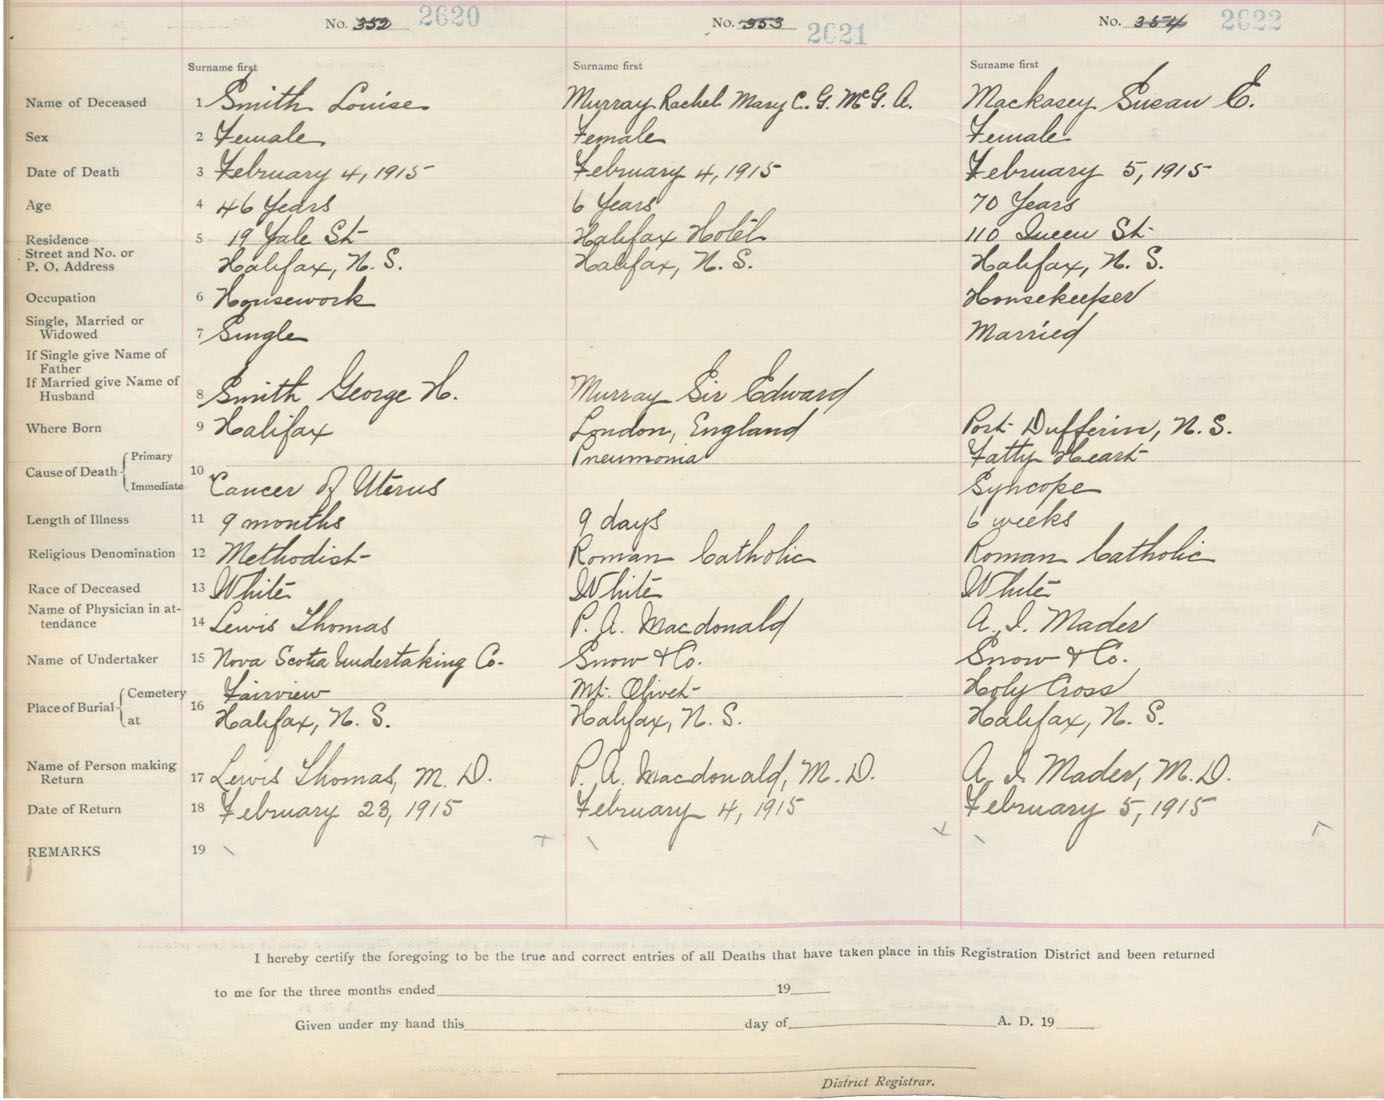 No. 352 2620 No. 353 2621 No. 354 2622
Surname first Surname first Surname first
Name of Deceased 1 Smith Louise Murray Rachel Mary C. G. McG. A. Mackasey Susan E.
Sex 2 Female Female Female
Date of Death 3 February 4, 1915 February 4, 1915 February 5, 1915
Age 4 46 Years 6 Years 70 Years
Residence 5 19 Yale St Halifax Hotel 110 Queen St.
Street and No. or
P. O. Address Halifax, N. S. Halifax, N. S. Halifax, N. S.
Occupation 6 Housework Housekeeper
Single, Married or
Widowed 7 Single Married
If Single give Name of
Father
If Married give Name of
Husband 8 Smith George H. Murray Sir Edward
Where Born 9 Halifax London, England Port Dufferin, N. S.
Cause of Death 10 Primary Pneumonia Fatty Heart
Immediate Cancer of Uterus Syncope
Length of Illness 11 9 months 9 days 6 weeks
Religious Denomination 12 Methodist Roman Catholic Roman Catholic
Race of Deceased 13 White White White
Name of Physician in at-
tendance 14 Lewis Thomas P. A. Macdonald A. I. Mader
Name of Undertaker 15 Nova Scotia Undertaking Co. Snow & Co. Snow & Co.
Place of Burial 16 Cemetery Fairview Mt. Olivet Holy Cross
at Halifax, N. S. Halifax, N. S. Halifax, N. S.
Name of Person making
Return 17 Lewis Thomas, M. D. P. A. Macdonald, M. D. A. I. Mader, M. D.
Date of Return 18 February 23, 1915 February 4, 1915 February 5, 1915
REMARKS 19
I hereby certify the foregoing to be the true and correct entries of all Deaths that have taken place in this Registration District and been returned
to me for the three months ended 19
Given under my hand this day of A. D. 19
District Registrar.